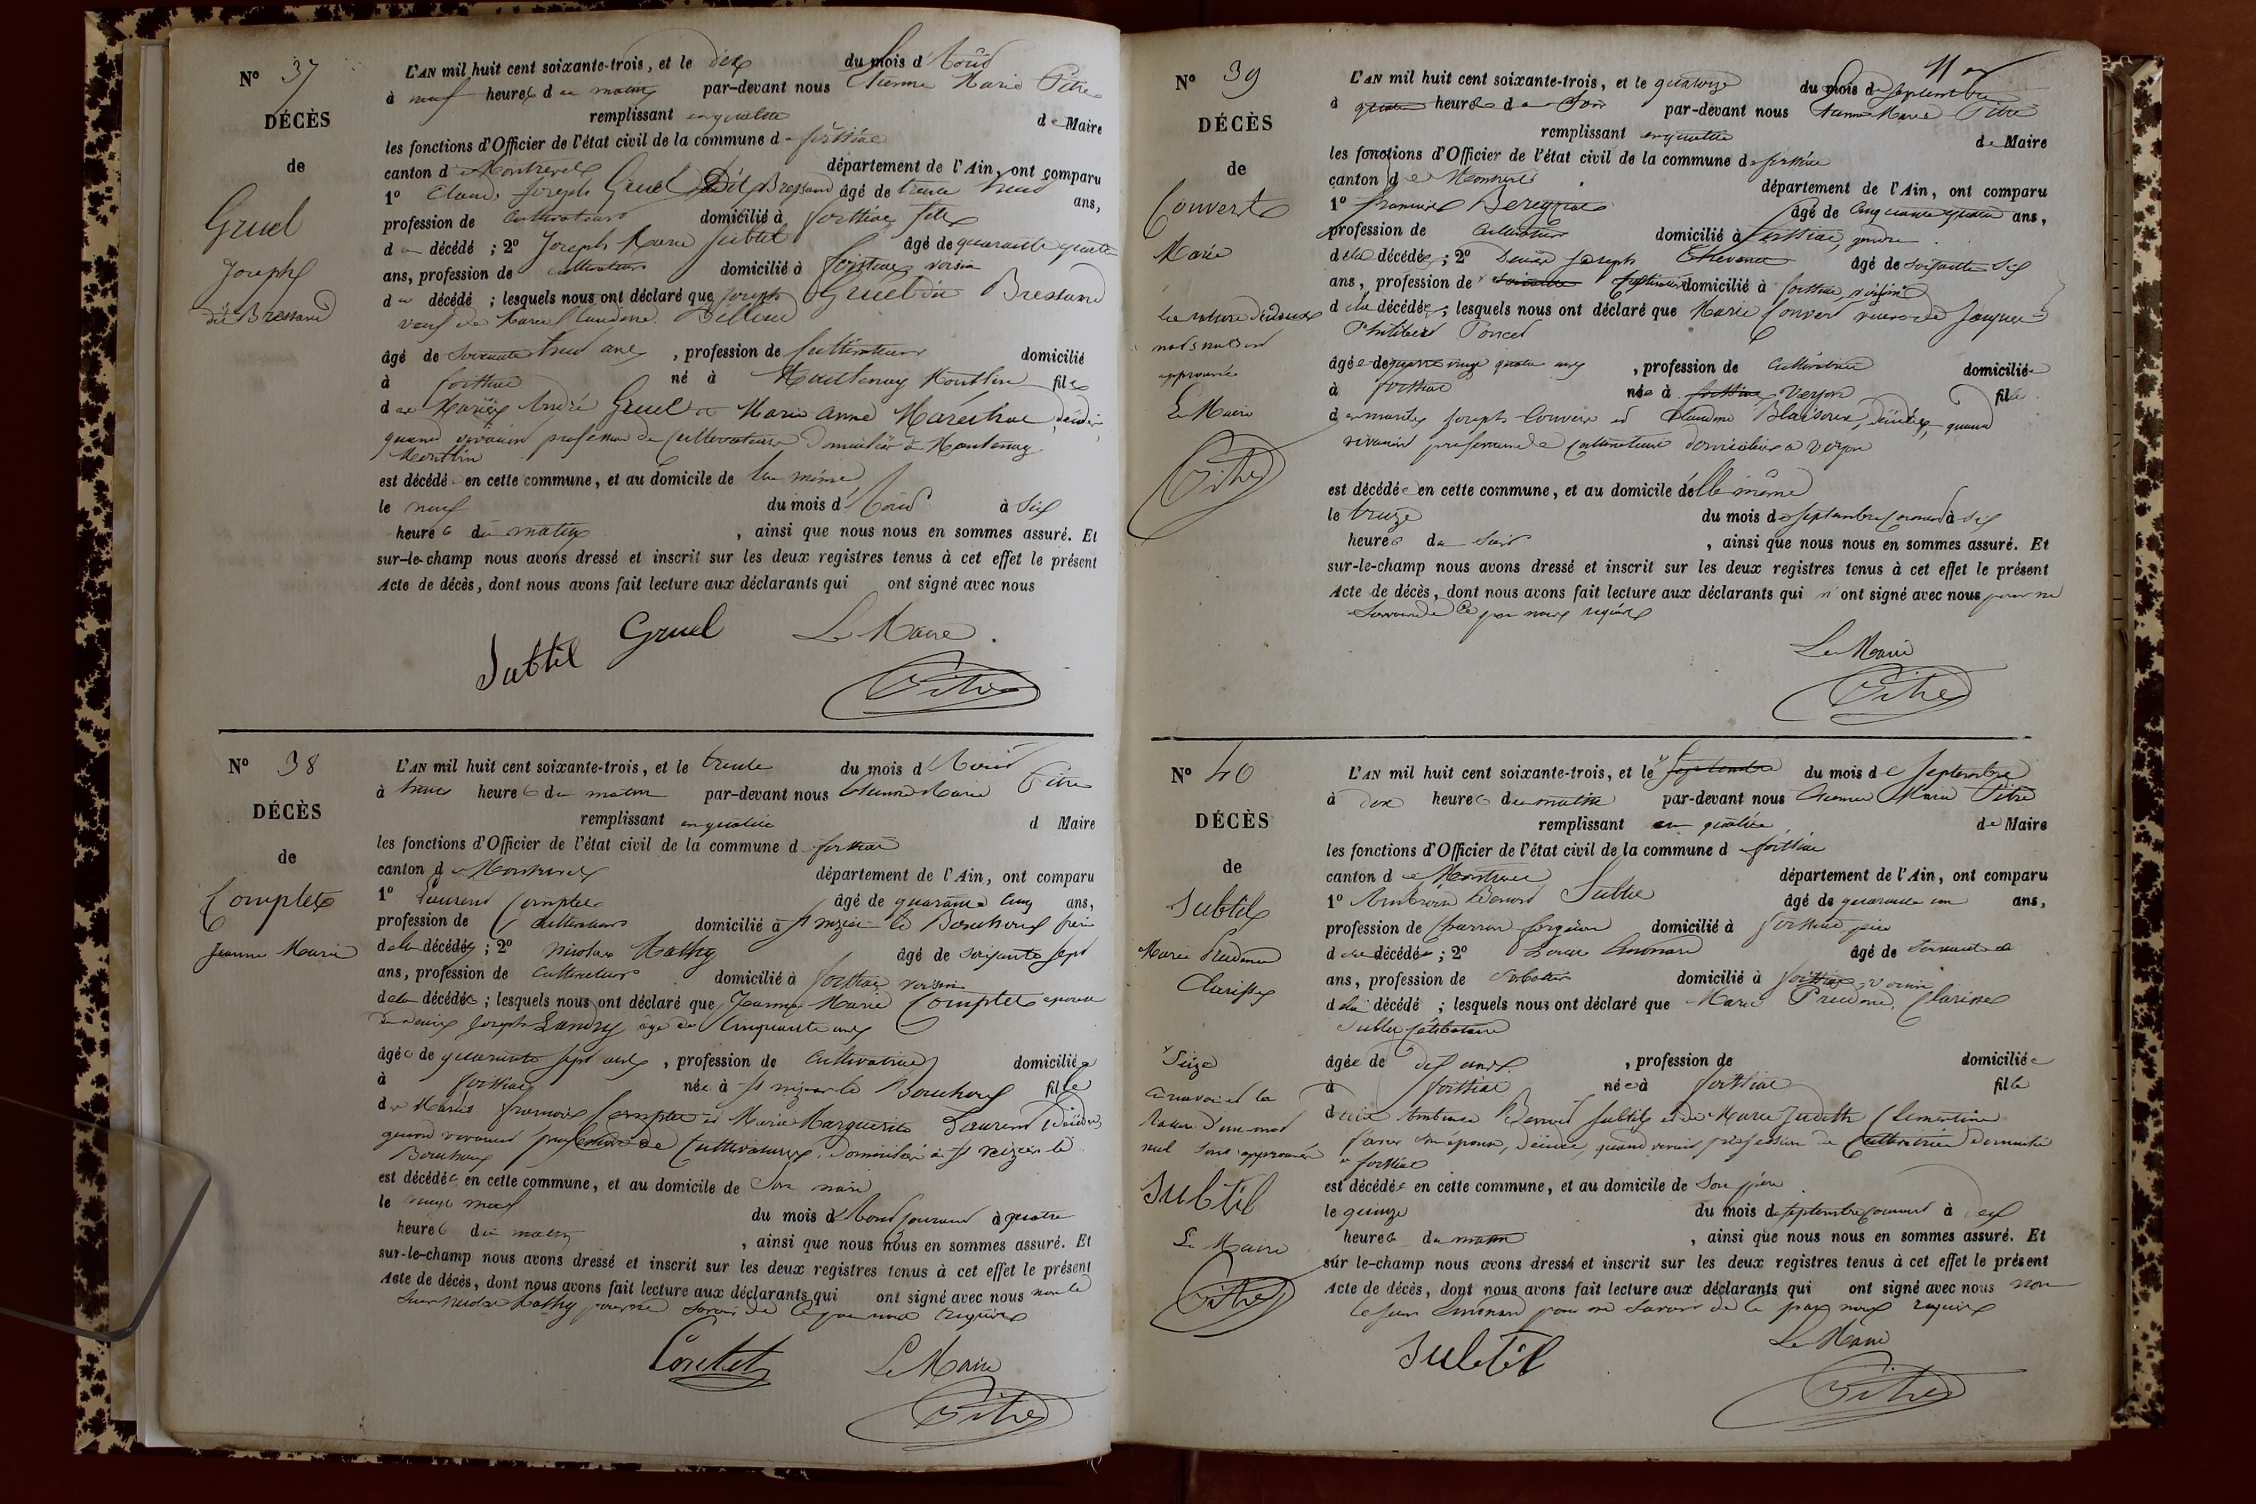 N° 37
DÉCÈS
de
Gruel
Joseph
dit Bressand
L'AN mil huit cent soixante-trois, et le dix du mois d'Août
à neuf heures du matin par-devant nous Etienne Marie Pitre
remplissant en qualité de Maire
les fonctions d'Officier de l'état civil de la commune de foissiac
canton de Montrevel département de l'Ain, ont comparu
1° Claude Joseph Gruel Dit Bressand âgé de trente ans,
profession de Cultivateur domicilié à foissiac fils
du décédé ; 2° Joseph Marie Subtil âgé de quarante quatre
ans, profession de cultivateur domicilié à foissiac voisin
du décédé ; lesquels nous ont déclaré que Joseph Gruel dit Bressand
veuf de Marie Claudine
âgé de soixante ans, profession de Cultivateur domicilié
à foissiac né à Mantenay Montlin fils
de Mariés André Gruel et Marie Anne Maréchal, décédés,
quand vivaient profession de Cultivateurs domiciliés à Mantenay
Montlin
est décédé en cette commune, et au domicile de lui même
le neuf du mois d'Août à six
heures du matin, ainsi que nous nous en sommes assuré. Et
sur-le-champ nous avons dressé et inscrit sur les deux registres tenus à cet effet le présent
Acte de décès, dont nous avons fait lecture aux déclarants qui ont signé avec nous
Subtil Gruel Le Maire
Pitre
N° 38
DÉCÈS
de
Complet
Jeanne Marie
L'AN mil huit cent soixante-trois, et le trente du mois d'Août
à heures du matin par-devant nous Etienne Marie Pitre
remplissant en qualité d Maire
les fonctions d'Officier de l'état civil de la commune de foissiac
canton de Montrevel département de l'Ain, ont comparu
1° Laurent Complet âgé de quarante cinq ans,
profession de Cultivateur domicilié à St nizier le Bouchoux frère
de la décédée ; 2° Nicolas Mathy âgé de soixante sept
ans, profession de Cultivateur domicilié à foissiac voisin
de la décédée ; lesquels nous ont déclaré que Jeanne Marie Complet épouse
de Joseph Landry âgé de Cinquante ans
âgée de quarante sept ans, profession de Cultivatrice domiciliée
à foissiac née à St nizier le Bouchoux fille
de Mariés françois Complet et Marie Marguerite Laurent décédés
quand vivaient profession de Cultivateurs, domiciliés à St nizier le
Bouchoux
est décédée en cette commune, et au domicile de son mari
le vingt neuf du mois d'Août courant à quatre
heures du matin, ainsi que nous nous en sommes assuré. Et
sur-le-champ nous avons dressé et inscrit sur les deux registres tenus à cet effet le présent
Acte de décès, dont nous avons fait lecture aux déclarants qui ont signé avec nous non le
sieur Nicolas Mathy pour ne savoir de ce par nous requis
Le Maire
Pitre
N° 39
DÉCÈS
de
Convert
Marie
La rature de deux
mots nuls est
approuvée
Le Maire
Pitre
L'AN mil huit cent soixante-trois, et le quatorze du mois de septembre
à quatre heures du soir par-devant nous Etienne Marie Pitre
remplissant en qualité de Maire
les fonctions d'Officier de l'état civil de la commune de foissiac
canton de Montrevel département de l'Ain, ont comparu
1° françois âgé de Cinquante quatre ans,
profession de Cultivateur domicilié à foissiac, gendre
de la décédée ; 2° Denis Joseph Thevenet âgé de soixante six
ans, profession de Cultivateur domicilié à foissiac, voisin
de la décédée ; lesquels nous ont déclaré que Marie Convert veuve de Jacques
Philibert Poncet
âgée de quatre vingt quatre ans, profession de Cultivatrice domiciliée
à foissiac née à foissiac Verjon fille
de mariés Joseph Convert et Claudine, décédés, quand
vivaient profession de Cultivateurs domiciliés à Verjon
est décédée en cette commune, et au domicile d'elle même
le treize du mois de septembre courant à six
heures du soir, ainsi que nous nous en sommes assuré. Et
sur-le-champ nous avons dressé et inscrit sur les deux registres tenus à cet effet le présent
Acte de décès, dont nous avons fait lecture aux déclarants qui n'ont signé avec nous pour ne
savoir de ce par nous requis
Le Maire
Pitre
N° 40
DÉCÈS
de
Subtil
Marie Prudence
Clarisse
Seize
Ce renvoi et la
Rature d'un mot
nul sont approuvés
Subtil
Le Maire
Pitre
L'AN mil huit cent soixante-trois, et le septembre du mois de Septembre
à dix heures du matin par-devant nous Etienne Marie Pitre
remplissant en qualité de Maire
les fonctions d'Officier de l'état civil de la commune de foissiac
canton de Montrevel département de l'Ain, ont comparu
1° Ambroise Benoit Subtil âgé de quarante un ans,
profession de Charron forgeron domicilié à foissiac père
de la décédée ; 2° âgé de soixante
ans, profession de Sabotier domicilié à foissiac, voisin
de la décédé ; lesquels nous ont déclaré que Marie Prudence Clarisse
Subtil Célibataire
âgée de dix ans, profession de domiciliée
à foissiac née à foissiac fille
de Ambroise Benoit Subtil et de Marie Judith Clémentine
son épouse, décédée, quand vivait profession de Cultivatrice domiciliée
à foissiac
est décédée en cette commune, et au domicile de son père
le quinze du mois de septembre courant à dix
heures du matin, ainsi que nous nous en sommes assuré. Et
sur le-champ nous avons dressé et inscrit sur les deux registres tenus à cet effet le présent
Acte de décès, dont nous avons fait lecture aux déclarants qui ont signé avec nous non
le sieur pour ne savoir de ce par nous requis
Subtil
Le Maire
Pitre